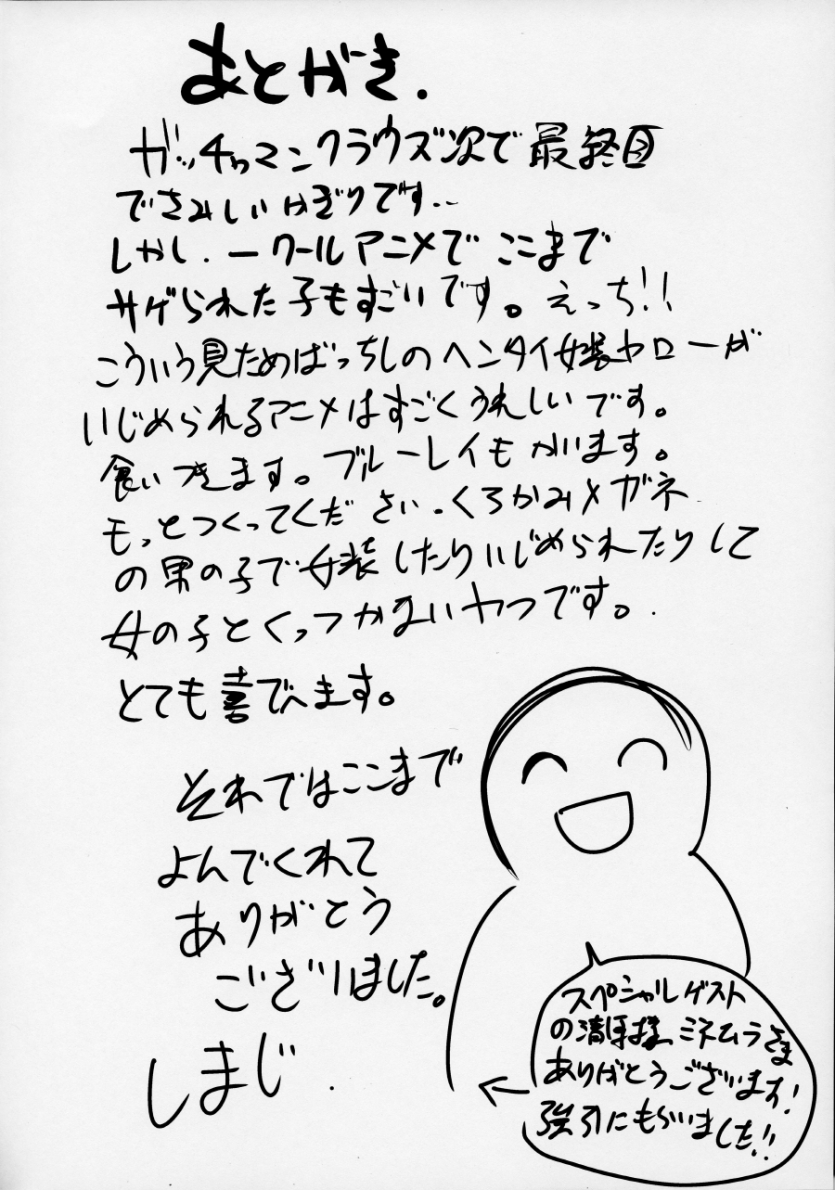 あとがき.
ガッチャマンクラウズ次で最終回
でさみしいかぎりです..
しかし.一クールアニメでここまで
サゲられた子もすごいです。えっち!!
こういう見ためばっちしのヘンタイ女装ヤローが
いじめられるアニメはすごくうれしいです。
食いつきます。ブルーレイもかいます。
もっとつくってください.くろかみメガネ
の男の子で女装したりいじめられたりして
女の子とくっつかないヤつです。.
とても喜でへます。
それではここまで
よんでくれて
ありがとう
ございました。
しまじ.
スペシャルゲスト
の清 様 ミネムラさま
ありがとうございます!
強引にもらいました!!